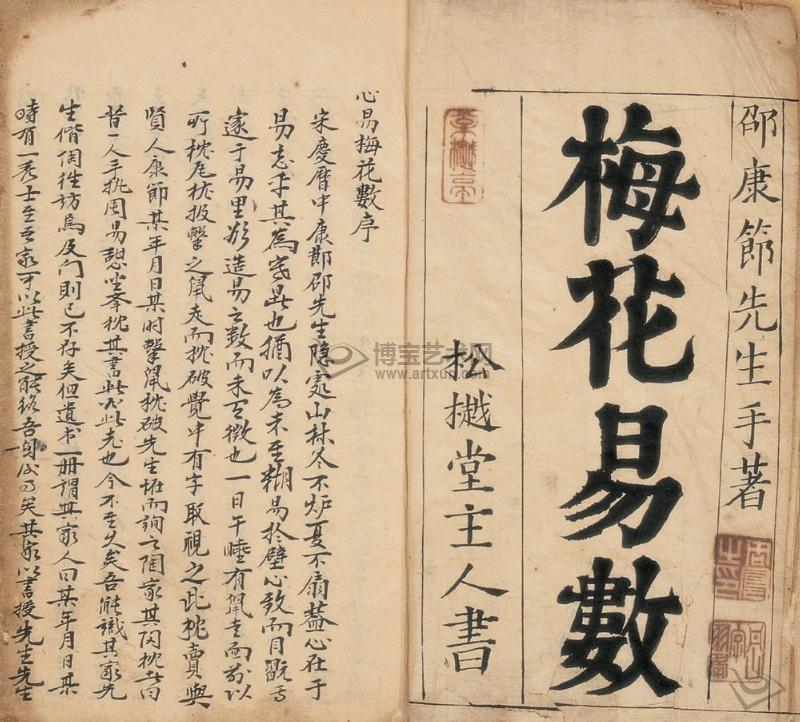 邵康節先生手著
梅花易數
松樾堂主人書
心易梅花數序
宋慶曆中康節邵先生隱處山林冬不炉夏不扇蓋心在于
易忘乎其為寒暑也猶以為未至糊易於壁心致而目翫焉
遂于易理欲造易之数而未有徴也一日午睡有鼠走而前以
所枕瓦枕投擊之鼠走而枕破覺中有字取視之此枕賣與
賢人康節某年月日某时擊鼠枕破先生怪而詢之陶家其陶枕者曰
昔一人手执周易憩坐举枕其書此必此老也今不至久矣吾能識其家先
生偕陶往訪焉及门則已不存矣但遺书一册謂其家人曰某年月日某
時有一秀士至吾家可以此書授之能終吾身後事矣其家以書授先生先生
博宝艺术网
www.artxun.com